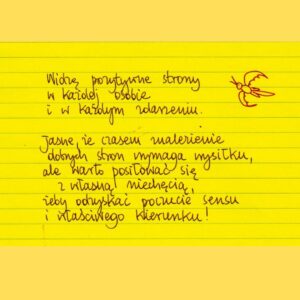 Widzę pozytywne strony
w każdej osobie
i w każdym zdarzeniu.
Jasne, że czasem znalezienie
dobrych stron wymaga wysiłku,
ale warto posiłować się
z własną niechęcią,
żeby odzyskać poczucie sensu
i właściwego kierunku!